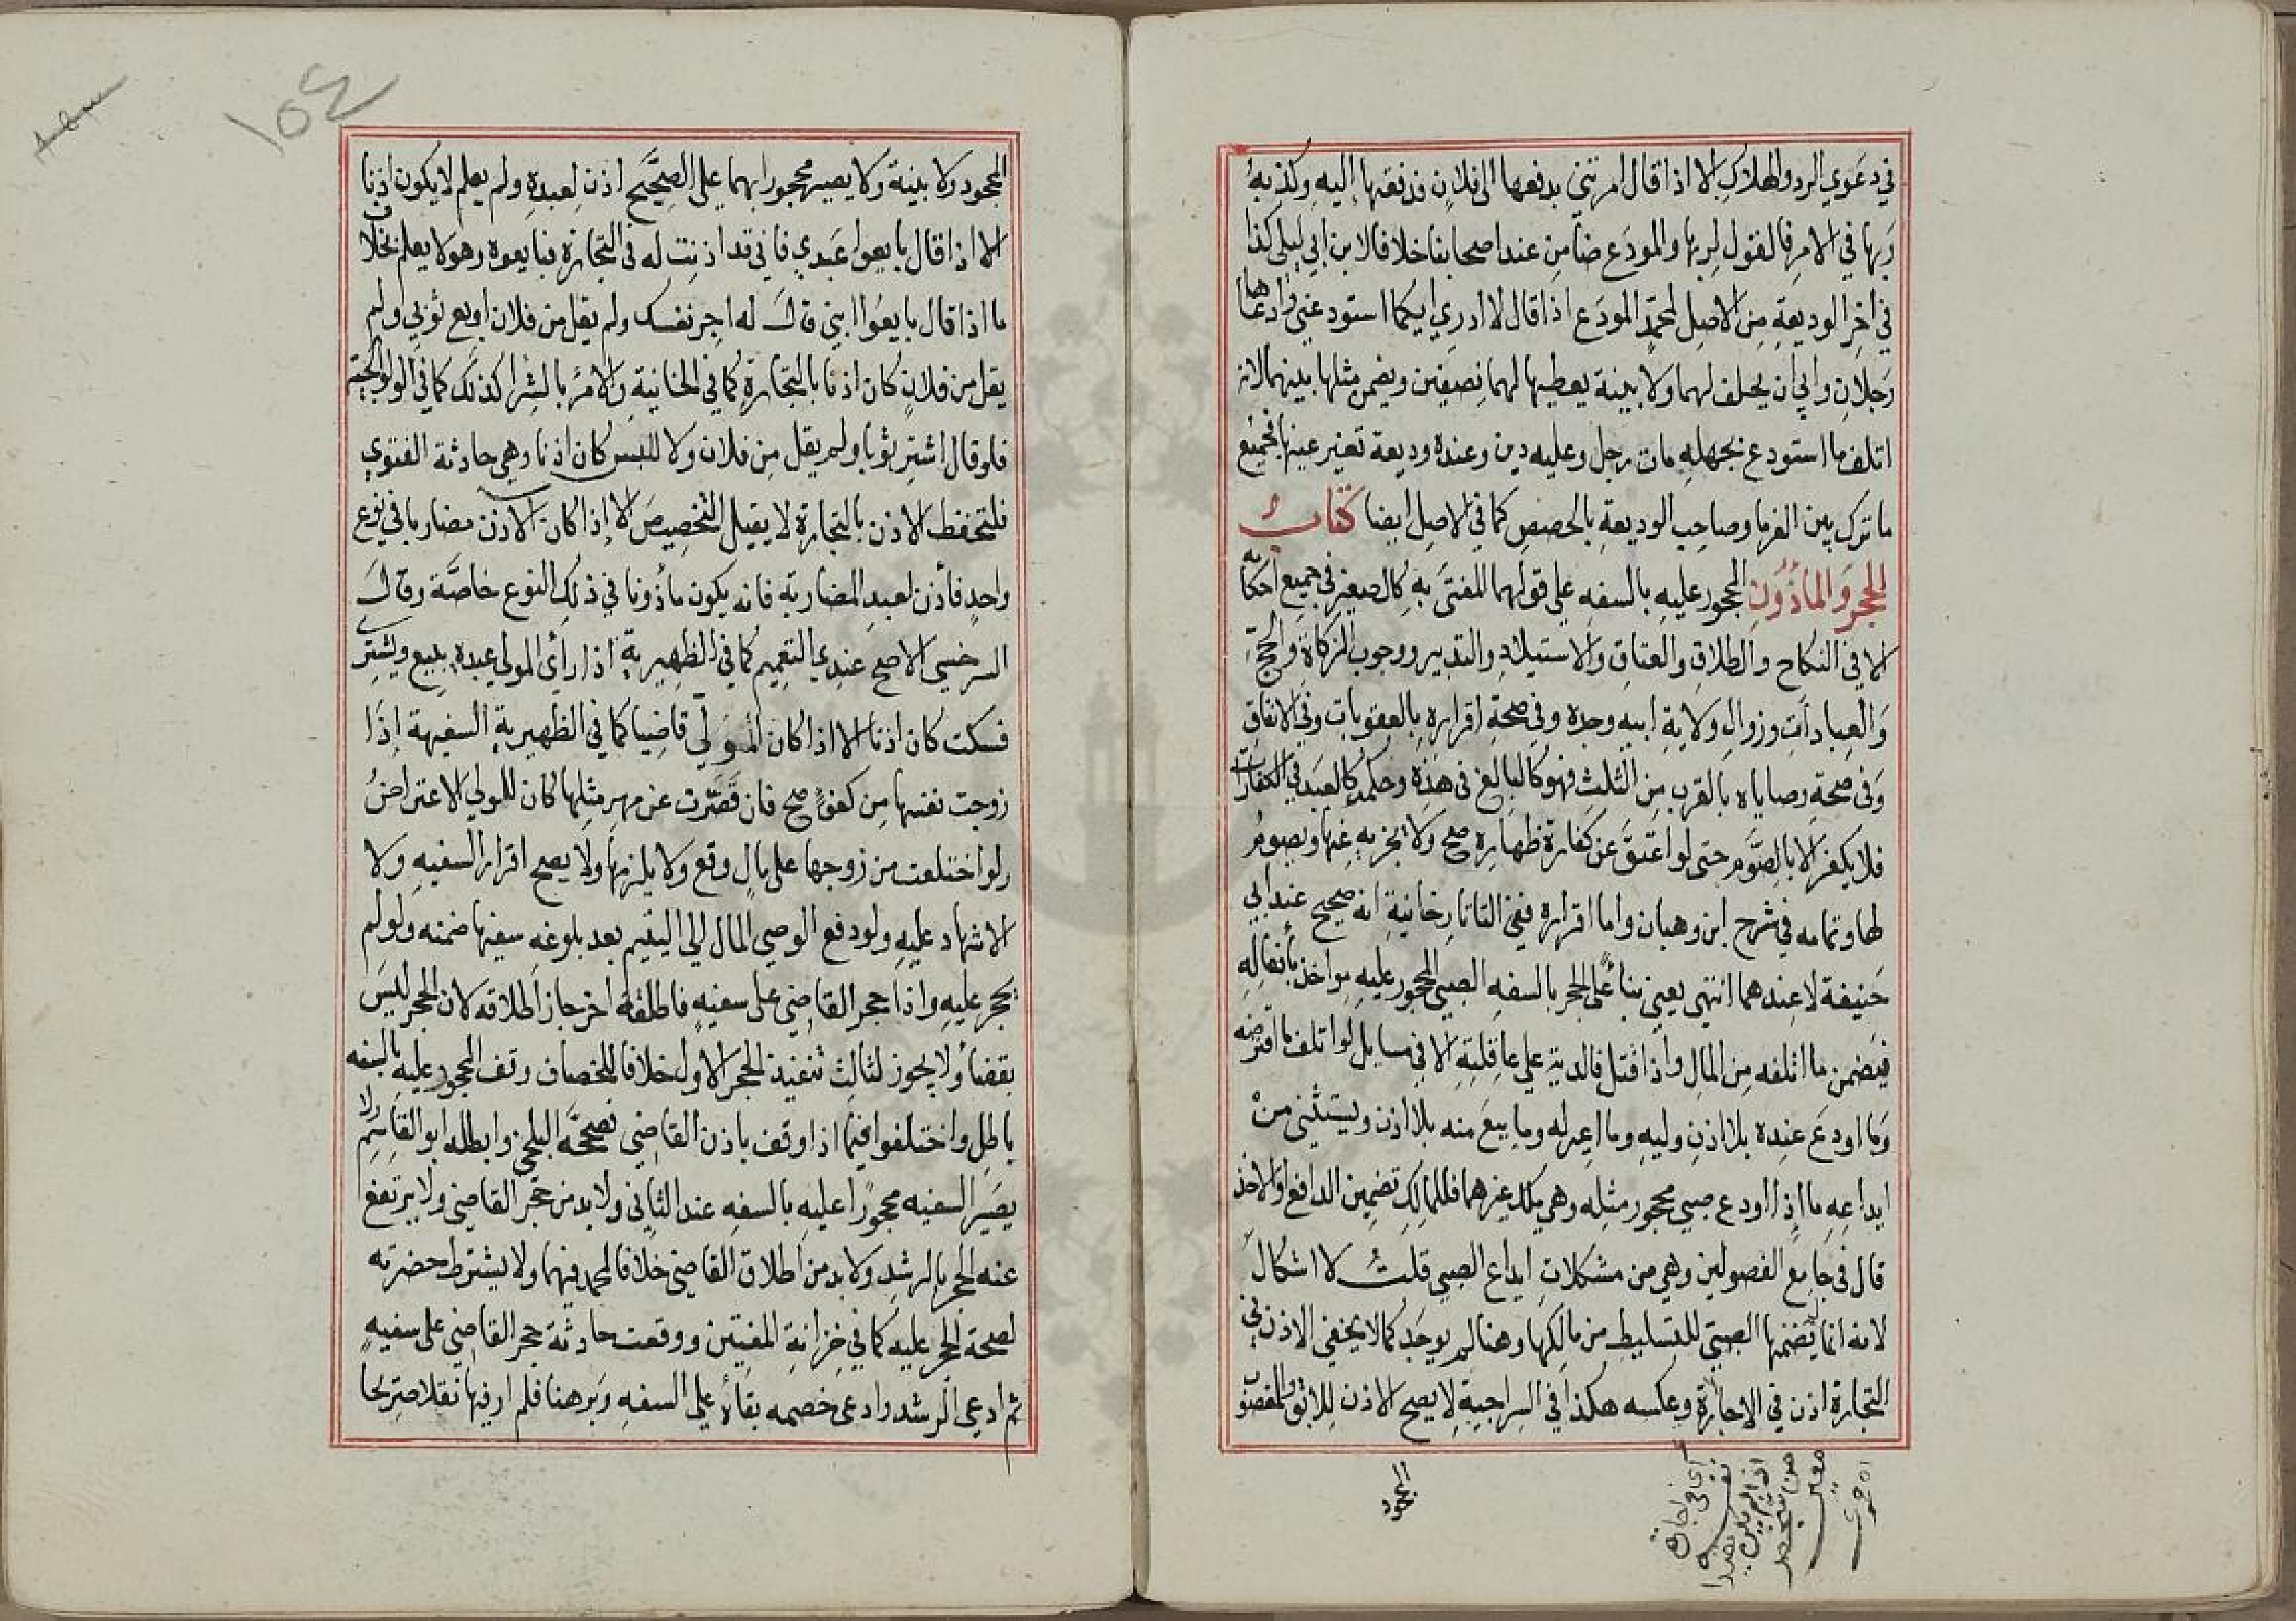 في دعوي الرد والهلاك الا اذا قال امرتني بدفعها الى فلان فدفعتها اليه وكذبه
ربها في الامر فالقول لربها والمودَع ضامن عند اصحابنا خلافا لابن ابي ليلى كذا
في اخر الوديعة من الاصل لمحمد المودَع اذا قال لا ادري ايكما استودعني وادعاها
رجلان وابي ان يحلف لهما ولا بينة يعطيها لهما نصفين ويضمن مثلها بينهما لانه
اتلف ما استودع بجهله مات رجل وعليه دين وعنده وديعة بغير عينها فجميع
ما ترك بين الغرما وصاحب الوديعة بالحصص كما في الاصل ايضا كتاب
الحجر والمأذون المحجور عليه بالسفه علي قولهما المفتى به كالصغير في جميع احكامه
الا في النكاح والطلاق والعتاق والاستيلاد والتدبير ووجوب الزكاة والحج
والعبادات وزوال ولاية ابيه وجده وفي صحة اقراره بالعقوبات وفي الانفاق
وفي صحة وصاياه بالقرب من الثلث فهو كالبالغ في هذه وحكمه كالعبد في الكفارات
فلا يكفر الا بالصوم حتى لو اعتق عن كفارة ظهاره صح ولا يجزيه عنها ويصوم
لها وتمامه في شرح ابن وهبان واما اقراره ففي التاتارخانية انه صحيح عند ابي
حنيفة لا عندهما انتهي يعني بناء على الحجر بالسفه الصبي المحجور عليه مواخذ بأفعاله
فيضمن ما اتلفه من المال واذا قتل فالدية على عاقلته الا في مسايل لو اتلف ما اقترضه
وما اودع عنده بلا اذن وليه وما اعير له وما بيع منه بلا اذن ويستثنى من
ايداعه ما اذا اودع صبي محجور مثله وهي ملك غيرهما فللمالك تضمين الدافع او الاخذ
قال في جامع الفصولين وهي من مشكلات ايداع الصبي قلت لا اشكال
لانه انما لم يضمنها الصبي للتسليط من مالكها وهنا لم يوجد كما لا يخفي الاذن في
التجارة اذن في الاجارة وعكسه هكذا في السراجية لا يصح الاذن للابق والمغصوب
المجحود
اى في اجارة
نفسه
اذا لم يكن
من شخص
معين
اه حموي
١٥٤
المجحود ولا بينة ولا يصير محجورا بهما على الصحيح اذن لعبده ولم يعلم لا يكون اذنا
الا اذا قال بايعوا عبدي فاني قد اذنت له في التجارة فبايعوه وهو لا يعلم بخلاف
ما اذا قال بايعوا ابني قال له اجر نفسك ولم يقل من فلان او بع ثوبي ولم
يقل من فلان كان اذنا بالتجارة كما في الخانية والامر بالشرا كذلك كما في الولوالجية
فلو قال اشتر ثوبا ولم يقل من فلان ولا للبس كان اذنا وهي حادثة الفتوى
فلتحفظ الاذن بالتجارة لا يقبل التخصيص الا اذا كان الاذن مضاربا في نوع
واحد فأذن لعبد المضاربة فانه يكون مأذونا في ذلك النوع خاصة وقال
السرخسي الاصح عندي التعميم كما في الظهيرية اذا رأى المولى عبده يبيع ويشتري
فسكت كان اذنا الا اذا كان المولي قاضيا كما في الظهيرية السفيهة اذا
زوجت نفسها من كفؤ صح فان قصرت عن مهر مثلها كان للولي الاعتراض
ولو اختلعت من زوجها على مال وقع ولا يلزمها ولا يصح اقرار السفيه ولا
الاشهاد عليه ولو دفع الوصي المال الي اليتيم بعد بلوغه سفيها ضمنه ولو لم
يحجر عليه واذا حجر القاضي على سفيه فاطلقه اخر جاز اطلاقه لان الحجر ليس
بقضاء ولا يجوز لثالث تنفيذ الحجر الاول خلافا للخصاف وقف المحجور عليه بالسفه
باطل واختلفوا فيما اذا وقف باذن القاضي فصححه البلخي وابطله ابو القاسم ولا
يصير السفيه محجورا عليه بالسفه عند الثاني ولا بد من حجر القاضي ولا يرتفع
عنه الحجر بالرشد ولا بد من اطلاق القاضي خلافا لمحمد فيهما ولا يشترط حضرته
لصحة الحجر عليه كما في خزانة المفتين ووقعت حادثة حجر القاضي على سفيه
ثم ادعى الرشد وادعى خصمه بقاءه على السفه وبرهنا فلم ار فيها نقلا صريحا